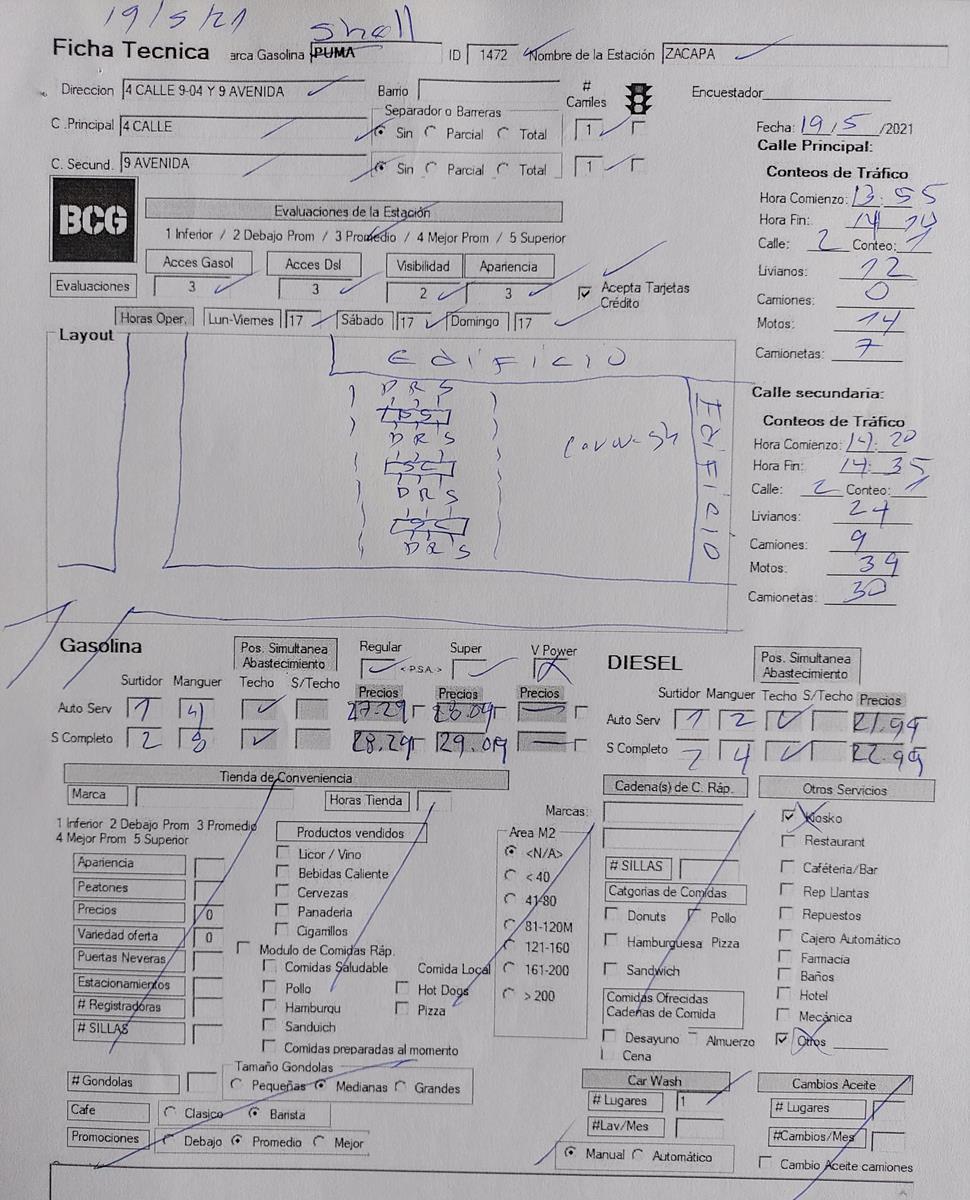 19/5/21
shell
Ficha Tecnica arca Gasolina PUMA ID 1472 Nombre de la Estación ZACAPA
Direccion 4 CALLE 9-04 Y 9 AVENIDA Barrio # Carriles Encuestador
Separador o Barreras
C .Principal 4 CALLE Sin Parcial Total 1
Fecha: 19/5/2021
C. Secund. 9 AVENIDA Sin Parcial Total 1
Calle Principal:
Conteos de Tráfico
BCG
Evaluaciones de la Estación
Hora Comienzo: 13:55
1 Inferior / 2 Debajo Prom / 3 Promedio / 4 Mejor Prom / 5 Superior
Hora Fin: 14
Calle: 2 Conteo: 1
Acces Gasol Acces Dsl Visibilidad Apariencia
Evaluaciones 3 3 2 3 Acepta Tarjetas Crédito
Livianos: 12
Camiones: 0
Horas Oper. Lun-Viernes 17 Sábado 17 Domingo 17
Motos: 14
Camionetas: 7
Layout
EdiFicio
D R S
D R S
SC
D R S
SC
D R S
Carwash
EdiFicio
Calle secundaria:
Conteos de Tráfico
Hora Comienzo: 14:20
Hora Fin: 14:35
Calle: 2 Conteo: 1
Livianos: 24
Camiones: 9
Motos: 39
Camionetas: 30
Gasolina Pos. Simultanea Abastecimiento Regular <P.S.A.> Super V Power
DIESEL Pos. Simultanea Abastecimiento
Surtidor Manguer Techo S/Techo Precios Precios Precios
Surtidor Manguer Techo S/Techo Precios
Auto Serv 1 4 27.29 28.09
Auto Serv 1 2 21.99
S Completo 2 8 28.29 29.09
S Completo 2 4 22.99
Tienda de Conveniencia
Marca Horas Tienda
1 Inferior 2 Debajo Prom 3 Promedio
4 Mejor Prom 5 Superior
Apariencia
Peatones
Precios 0
Variedad oferta 0
Puertas Neveras
Estacionamientos
# Registradoras
# SILLAS
Productos vendidos
Licor / Vino
Bebidas Caliente
Cervezas
Panaderia
Cigarrillos
Modulo de Comidas Ráp.
Comidas Saludable Comida Local
Pollo Hot Dogs
Hamburqu Pizza
Sanduich
Comidas preparadas al momento
Marcas:
Area M2
<N/A>
< 40
41-80
81-120M
121-160
161-200
> 200
Cadena(s) de C. Ráp.
# SILLAS
Catgorias de Comidas
Donuts Pollo
Hamburguesa Pizza
Sandwich
Comidas Ofrecidas
Cadenas de Comida
Desayuno Almuerzo
Cena
Otros Servicios
Kiosko
Restaurant
Caféteria/Bar
Rep Llantas
Repuestos
Cajero Automático
Farmacia
Baños
Hotel
Mecánica
Otros
# Gondolas Tamaño Gondolas
Pequeñas Medianas Grandes
Cafe Clasico Barista
Promociones Debajo Promedio Mejor
Car Wash
# Lugares 1
#Lav/Mes
Manual Automático
Cambios Aceite
# Lugares
#Cambios/Mes
Cambio Aceite camiones